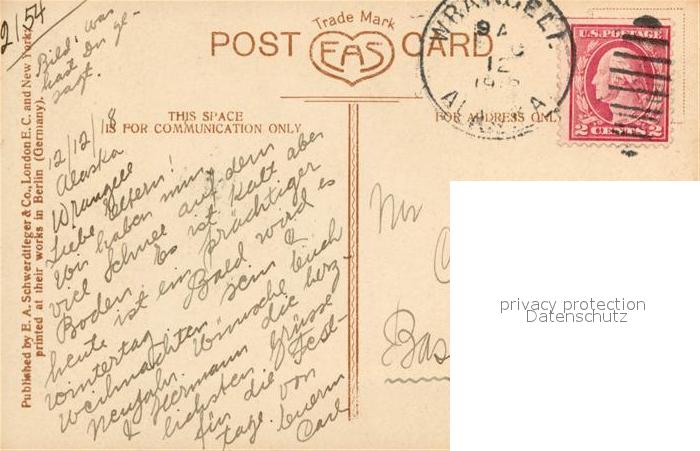 2/54
Bild: was
hast Du ge-
sagt.
Trade Mark
POST EAS CARD
WRANGELL
12
ALASKA
U.S. POSTAGE
2 CENTS 2
THIS SPACE
IS FOR COMMUNICATION ONLY
FOR ADDRESS ONLY
Published by E. A. Schwerdtfeger & Co., London E. C. and New York,
printed at their works in Berlin (Germany).
12/12/18
Alaska
Wrangell
Liebe Eltern!
Wir haben nun
viel Schnee auf dem
Boden. Es ist kalt aber
heute ist ein prächtiger
Wintertag. Bald wird es
Weihnachten sein &
Neujahr. Wünsche Euch
& Hermann die herz-
lichsten Grüsse
für die Fest-
tage von
Euerm
Carl
Mr
Bas
privacy protection
Datenschutz